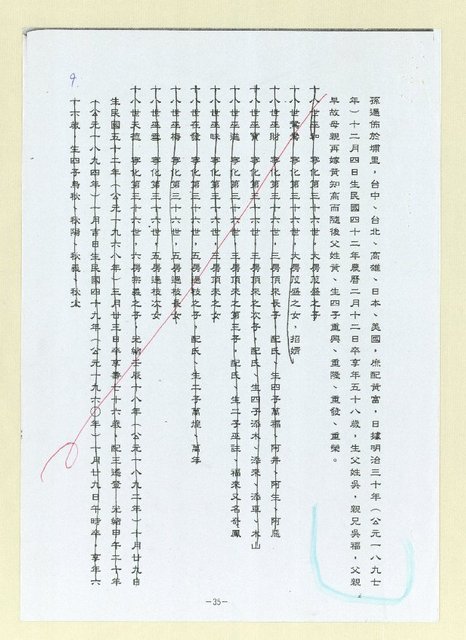 孫遍佈於埔里，台中、台北、高雄、日本、美國，庶配黃富，日據明治三十年（公元一八九七
年）十二月四日生民國四十二年農曆二月十二日卒享年五十八歲，生父姓吳，親兄吳福，父親
早故母親再嫁黃知高而隨後父姓黃、生四子重興、重隆、重發、重榮。
十八世巫和　寧化第三十六世，大房茂盛之子
十八世鴛鴦　寧化第三十六世，大房茂盛之女，招婿
十八世巫財　寧化第三十六世，三房頂來長子，配氏、生四子萬福、阿井、阿生、阿鹿
十八世巫寶　寧化第三十六世，三房頂來之次子，配氏、生四子添木、添來、添草、木山
十八世巫進　寧化第三十六世，三房頂來之第三子，配氏、生二子巫註、福來又名奇鳳
十八世巫味　寧化第三十六世，三房頂來之子
十八世在發　寧化第三十六世，五房連枝之子，配氏、生二子萬煌、萬年
十八世巫梅　寧化第三十六世，五房連枝長女
十八世巫雪　寧化第三十六世，五房連枝次女
十八世天德　寧化第三十六世，六房宗義之子，光緒壬辰十八年（公元一八九二年）十月廿九日
生民國五十二年（公元一九六八年）三月廿三日卒享壽七十六歲，配王遙登　光緒甲午二十年
（公元一八九四年）一月吉日生民國四十九年（公元一九六〇年）十月廿九日午時卒，享年六
十六歲，生四子鳥秋、秋陽、秋義、秋尘
9.
—35—